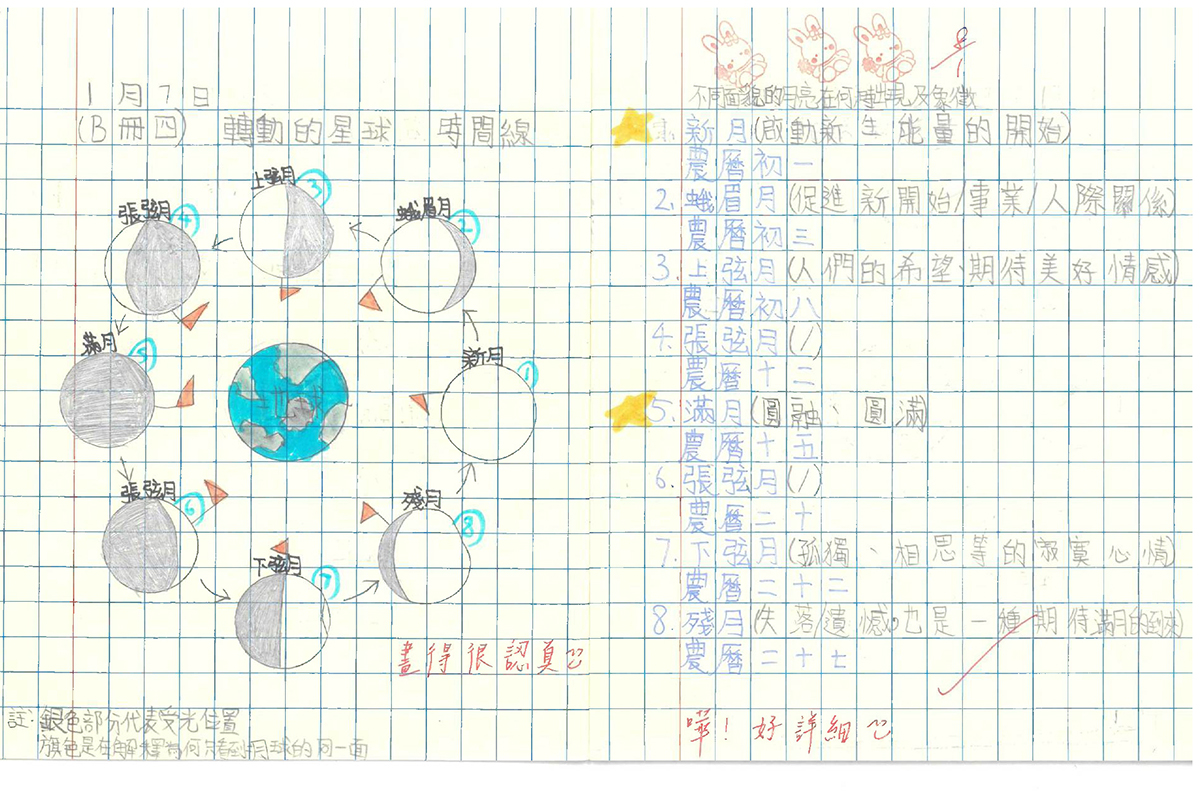 1月7日
(B冊四) 轉動的星球 時間線
上弦月 ③
張弦月 ④
蛾眉月 ②
滿月 ⑤
新月 ①
地球
張弦月 ⑥
殘月 ⑧
下弦月 ⑦
畫得很認真
註:銀色部分代表受光位置
旗色是在解釋為何只看到月球的同一面
不同面貌的月亮在何時出現及象徵
1.新月(啟動新生能量的開始)
農曆初一
2.蛾眉月(促進新開始/事業/人際關係)
農曆初三
3.上弦月(人們的希望、期待美好情感)
農曆初八
4.張弦月(/)
農曆十二
5.滿月(圓融、圓滿)
農曆十五
6.張弦月(/)
農曆二十
7.下弦月(孤獨、相思等的寂寞心情)
農曆二十二
8.殘月(失落/遺憾,也是一種期待滿月的到來)
農曆二十七
嘩!好詳細